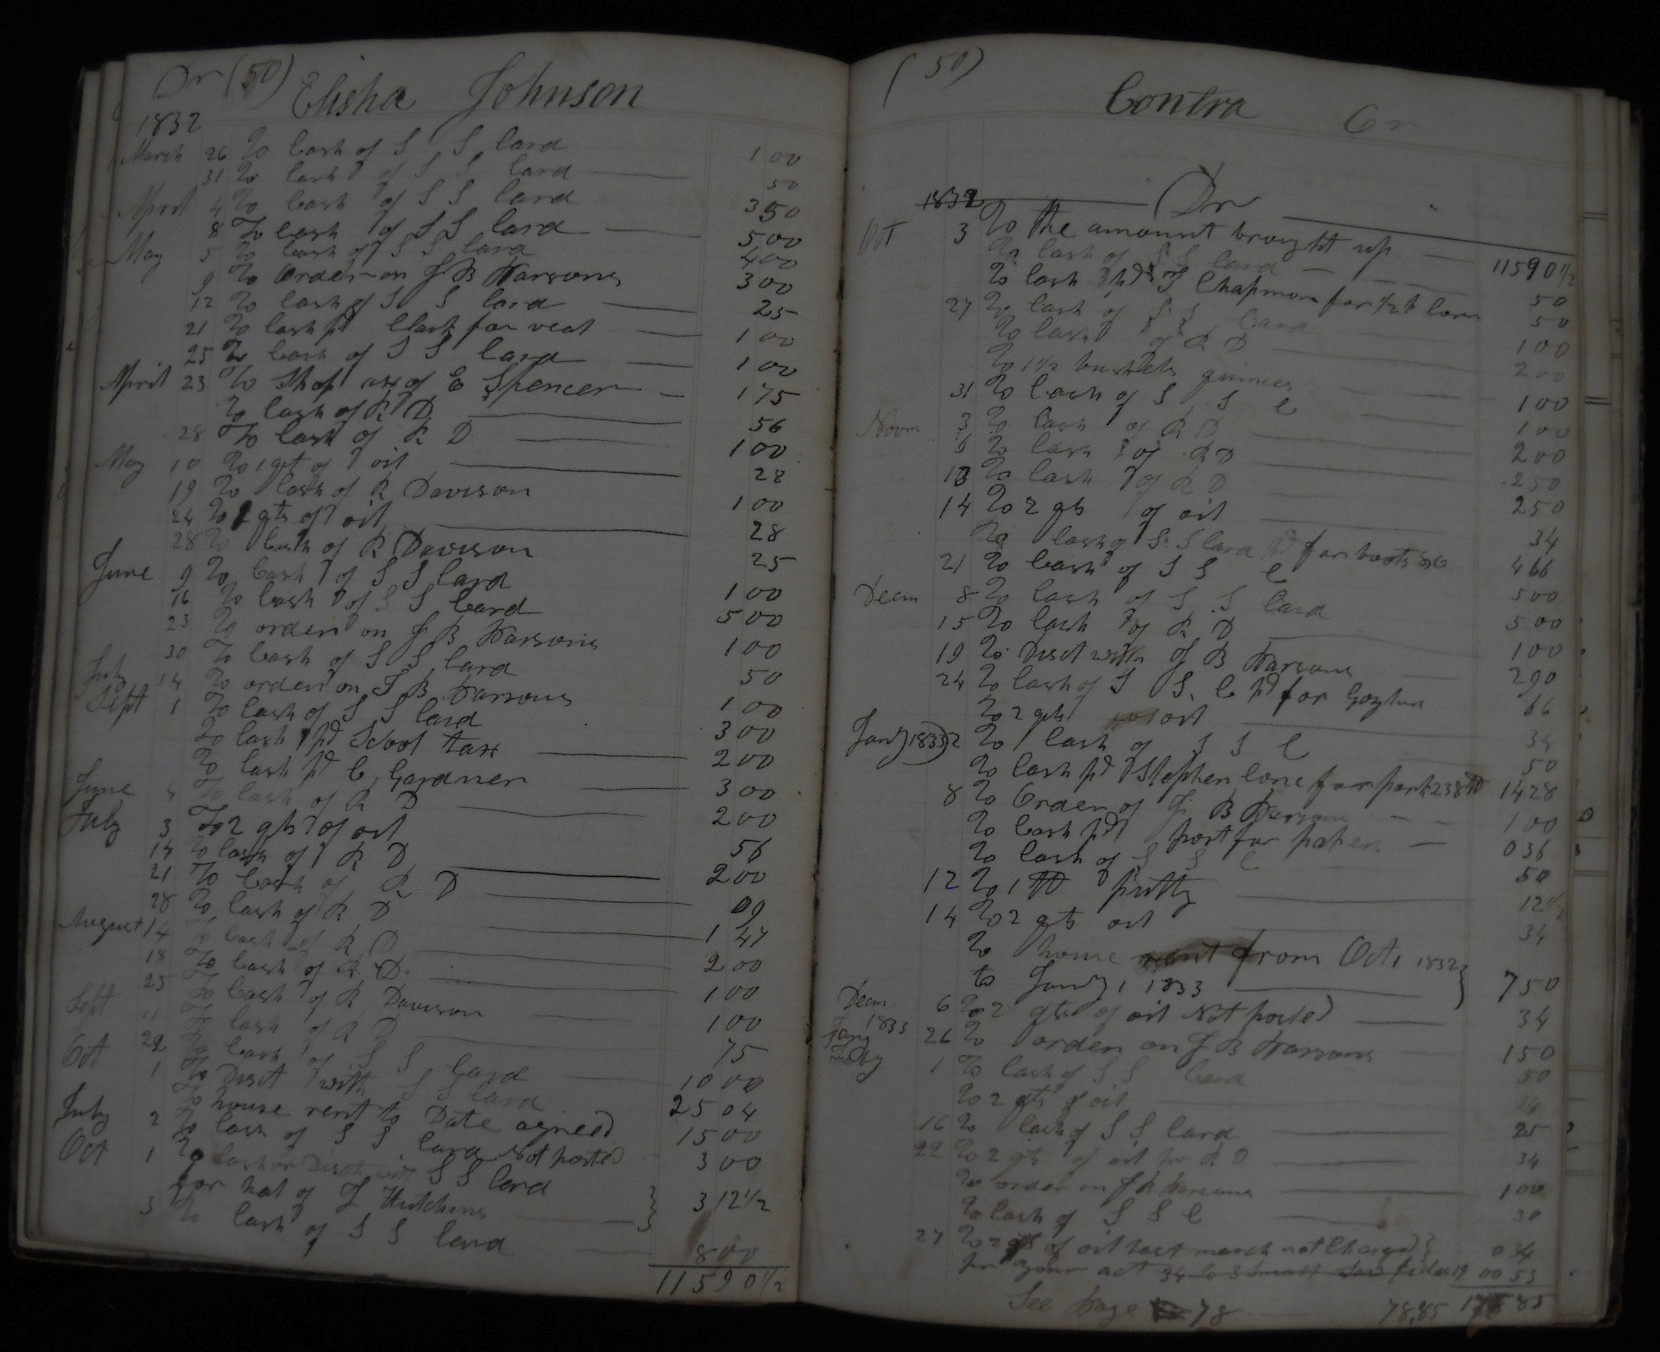 Dr (50) Elisha Johnson
1832
March 26 To Cash of S S Card 1 00
31 To Cash of S S Card 50
April 4 To Cash of S S Card 3 50
8 To Cash of S S Card 5 00
May 5 To Cash of S S Card 4 00
9 To Order on J B Parsons 3 00
12 To Cash of S S Card 25
21 To Cash pd Clark for veal 1 00
25 To Cash of S S Card 1 00
April 23 To Shop axe of E Spencer 1 75
To Cash of R D 56
28 To Cash of R D 1 00
May 10 To 1 gt of oil 28
19 To Cash of R Davison 1 00
24 To 1 gts of oil 28
28 To Cash of R Davison 25
June 9 To Cash of S S Card 1 00
16 To Cash of S S Card 5 00
23 To order on J B Parsons 1 00
30 To Cash of S S Card 50
July 14 To order on J B Parsons 1 00
Sept 1 To Cash of S S Card 3 00
To Cash pd School tax 2 00
To Cash pd C Gardner 3 00
June 4 To Cash of R D 2 00
July 3 To 2 gts of oil 56
14 To Cash of R D 2 00
21 To Cash of R D 09
28 To Cash of R D 1 47
August 14 To Cash of R D 2 00
18 To Cash of R D 1 00
25 To Cash of R Davison 1 00
Sept 11 To Cash of R D 75
22 To Cash of S S Card 10 00
Oct 1 To Disct with S S Card 25 04
To house rent to Date agreed 15 00
July 2 To Cash of S S Card Not posted 3 00
Oct 1 To Cash or Disct with S S Card
for hat of J Hutchins } 3 12 1/2
3 To Cash of S S Card 8 00
115 90 1/2
(50) Contra Cr
1832 Dr
Oct 3 To the amount brought up 115 90 1/2
To Cash of S S Card 50
To Cash pd Chapman for 1/2 b Corn 50
27 To Cash of S S Card 1 00
To Cash of R D 2 00
To 1 1/2 bushels quinces 1 00
31 To Cash of S S C 1 00
Novm 3 To Cash of R D 2 00
6 To Cash of R D 2 50
13 To Cash of R D 2 50
14 To 2 gts of oil 34
To Cash of S S Card pd for boots &c 4 66
21 To Cash of S S C 5 00
Decm 8 To Cash of S S Card 5 00
15 To Cash of R D 1 00
19 To Disct with J B Parsons 2 90
24 To Cash of S S C pd for 66
To 2 gts oil 34
Jany 1833 2 To Cash of S S C 50
To Cash pd Stephen Cone for pork 238 lb 14 28
8 To Order of J B Parsons 1 00
To Cash pd post for paper 0 36
To Cash of S S C 50
12 To 1 lb putty 12 1/2
14 To 2 gts oil 34
To house rent from Oct 1 1832 }
to Jany 1 1833 } 7 50
Decm 6 To 2 gts of oil Not posted 34
1833
Jany 26 To order on J B Parsons 1 50
Feby 1 To Cash of S S Card 50
To 2 gts of oil 34
16 To Cash of S S Card 25
22 To 2 gts of oil pr R D 34
To order on J B Parsons 1 00
To Cash of S S C 30
27 To 2 gts of oil last march not Charged } 0 34
pr your act 34 to 3 Small 00 53
See page 78 78,85 85